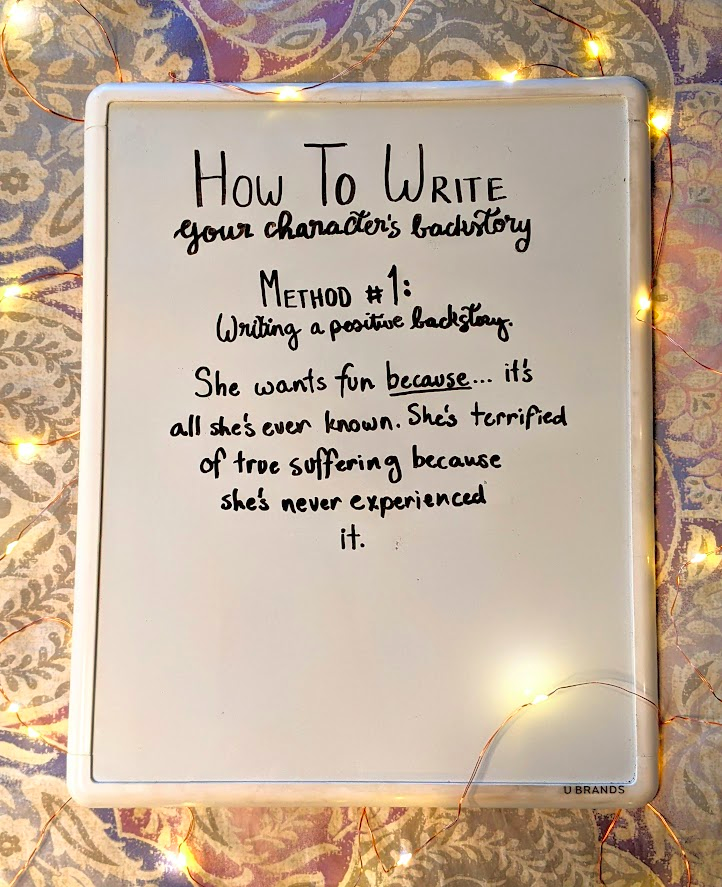 How To Write
your character's backstory
Method #1:
Writing a positive backstory.
She wants fun because... it's
all she's ever known. She's terrified
of true suffering because
she's never experienced
it.
U BRANDS